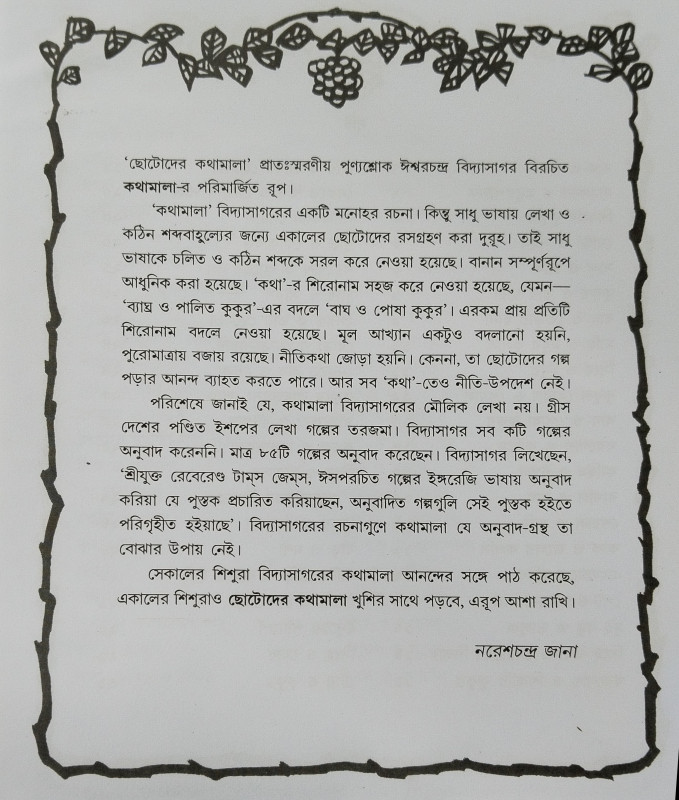 ‘ছোটোদের কথামালা’ প্রাতঃস্মরণীয় পুণ্যশ্লোক ঈশ্বরচন্দ্র বিদ্যাসাগর বিরচিত
কথামালা-র পরিমার্জিত রূপ।
‘কথামালা’ বিদ্যাসাগরের একটি মনোহর রচনা। কিন্তু সাধু ভাষায় লেখা ও
কঠিন শব্দবাহুল্যের জন্যে একালের ছোটোদের রসগ্রহণ করা দুরূহ। তাই সাধু
ভাষাকে চলিত ও কঠিন শব্দকে সরল করে নেওয়া হয়েছে। বানান সম্পূর্ণরূপে
আধুনিক করা হয়েছে। ‘কথা’-র শিরোনাম সহজ করে নেওয়া হয়েছে, যেমন—
‘ব্যাঘ্র ও পালিত কুকুর’-এর বদলে ‘বাঘ ও পোষা কুকুর’। এরকম প্রায় প্রতিটি
শিরোনাম বদলে নেওয়া হয়েছে। মূল আখ্যান একটুও বদলানো হয়নি,
পুরোমাত্রায় বজায় রয়েছে। নীতিকথা জোড়া হয়নি। কেননা, তা ছোটোদের গল্প
পড়ার আনন্দ ব্যাহত করতে পারে। আর সব ‘কথা’-তেও নীতি-উপদেশ নেই।
পরিশেষে জানাই যে, কথামালা বিদ্যাসাগরের মৌলিক লেখা নয়। গ্রীস
দেশের পণ্ডিত ইশপের লেখা গল্পের তরজমা। বিদ্যাসাগর সব কটি গল্পের
অনুবাদ করেননি। মাত্র ৮৫টি গল্পের অনুবাদ করেছেন। বিদ্যাসাগর লিখেছেন,
‘শ্রীযুক্ত রেবেরেণ্ড টাম্‌স জেম্‌স, ঈসপরচিত গল্পের ইঙ্গরেজি ভাষায় অনুবাদ
করিয়া যে পুস্তক প্রচারিত করিয়াছেন, অনুবাদিত গল্পগুলি সেই পুস্তক হইতে
পরিগৃহীত হইয়াছে’। বিদ্যাসাগরের রচনাগুণে কথামালা যে অনুবাদ-গ্রন্থ তা
বোঝার উপায় নেই।
সেকালের শিশুরা বিদ্যাসাগরের কথামালা আনন্দের সঙ্গে পাঠ করেছে,
একালের শিশুরাও ছোটোদের কথামালা খুশির সাথে পড়বে, এরূপ আশা রাখি।
নরেশচন্দ্র জানা